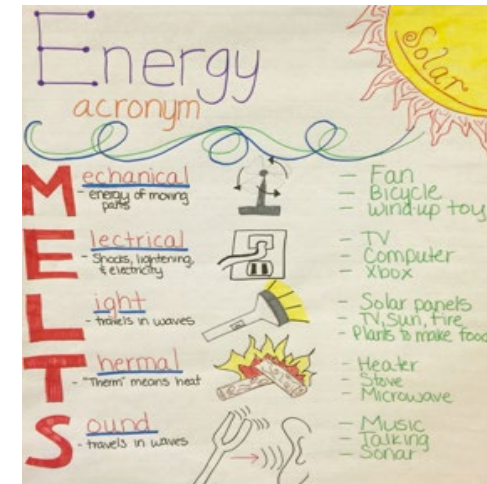 Energy
Solar
acronym
Mechanical
- energy of moving
parts
- Fan
- Bicycle
- Wind-up toy
Electrical
- Shocks, lightening,
& electricity
- TV
- Computer
- Xbox
Light
- travels in waves
- Solar panels
- TV, Sun, fire
- Plants to make food
Thermal
- "Therm" means heat
- Heater
- Stove
- Microwave
Sound
- travels in waves
- Music
- Talking
- Sonar